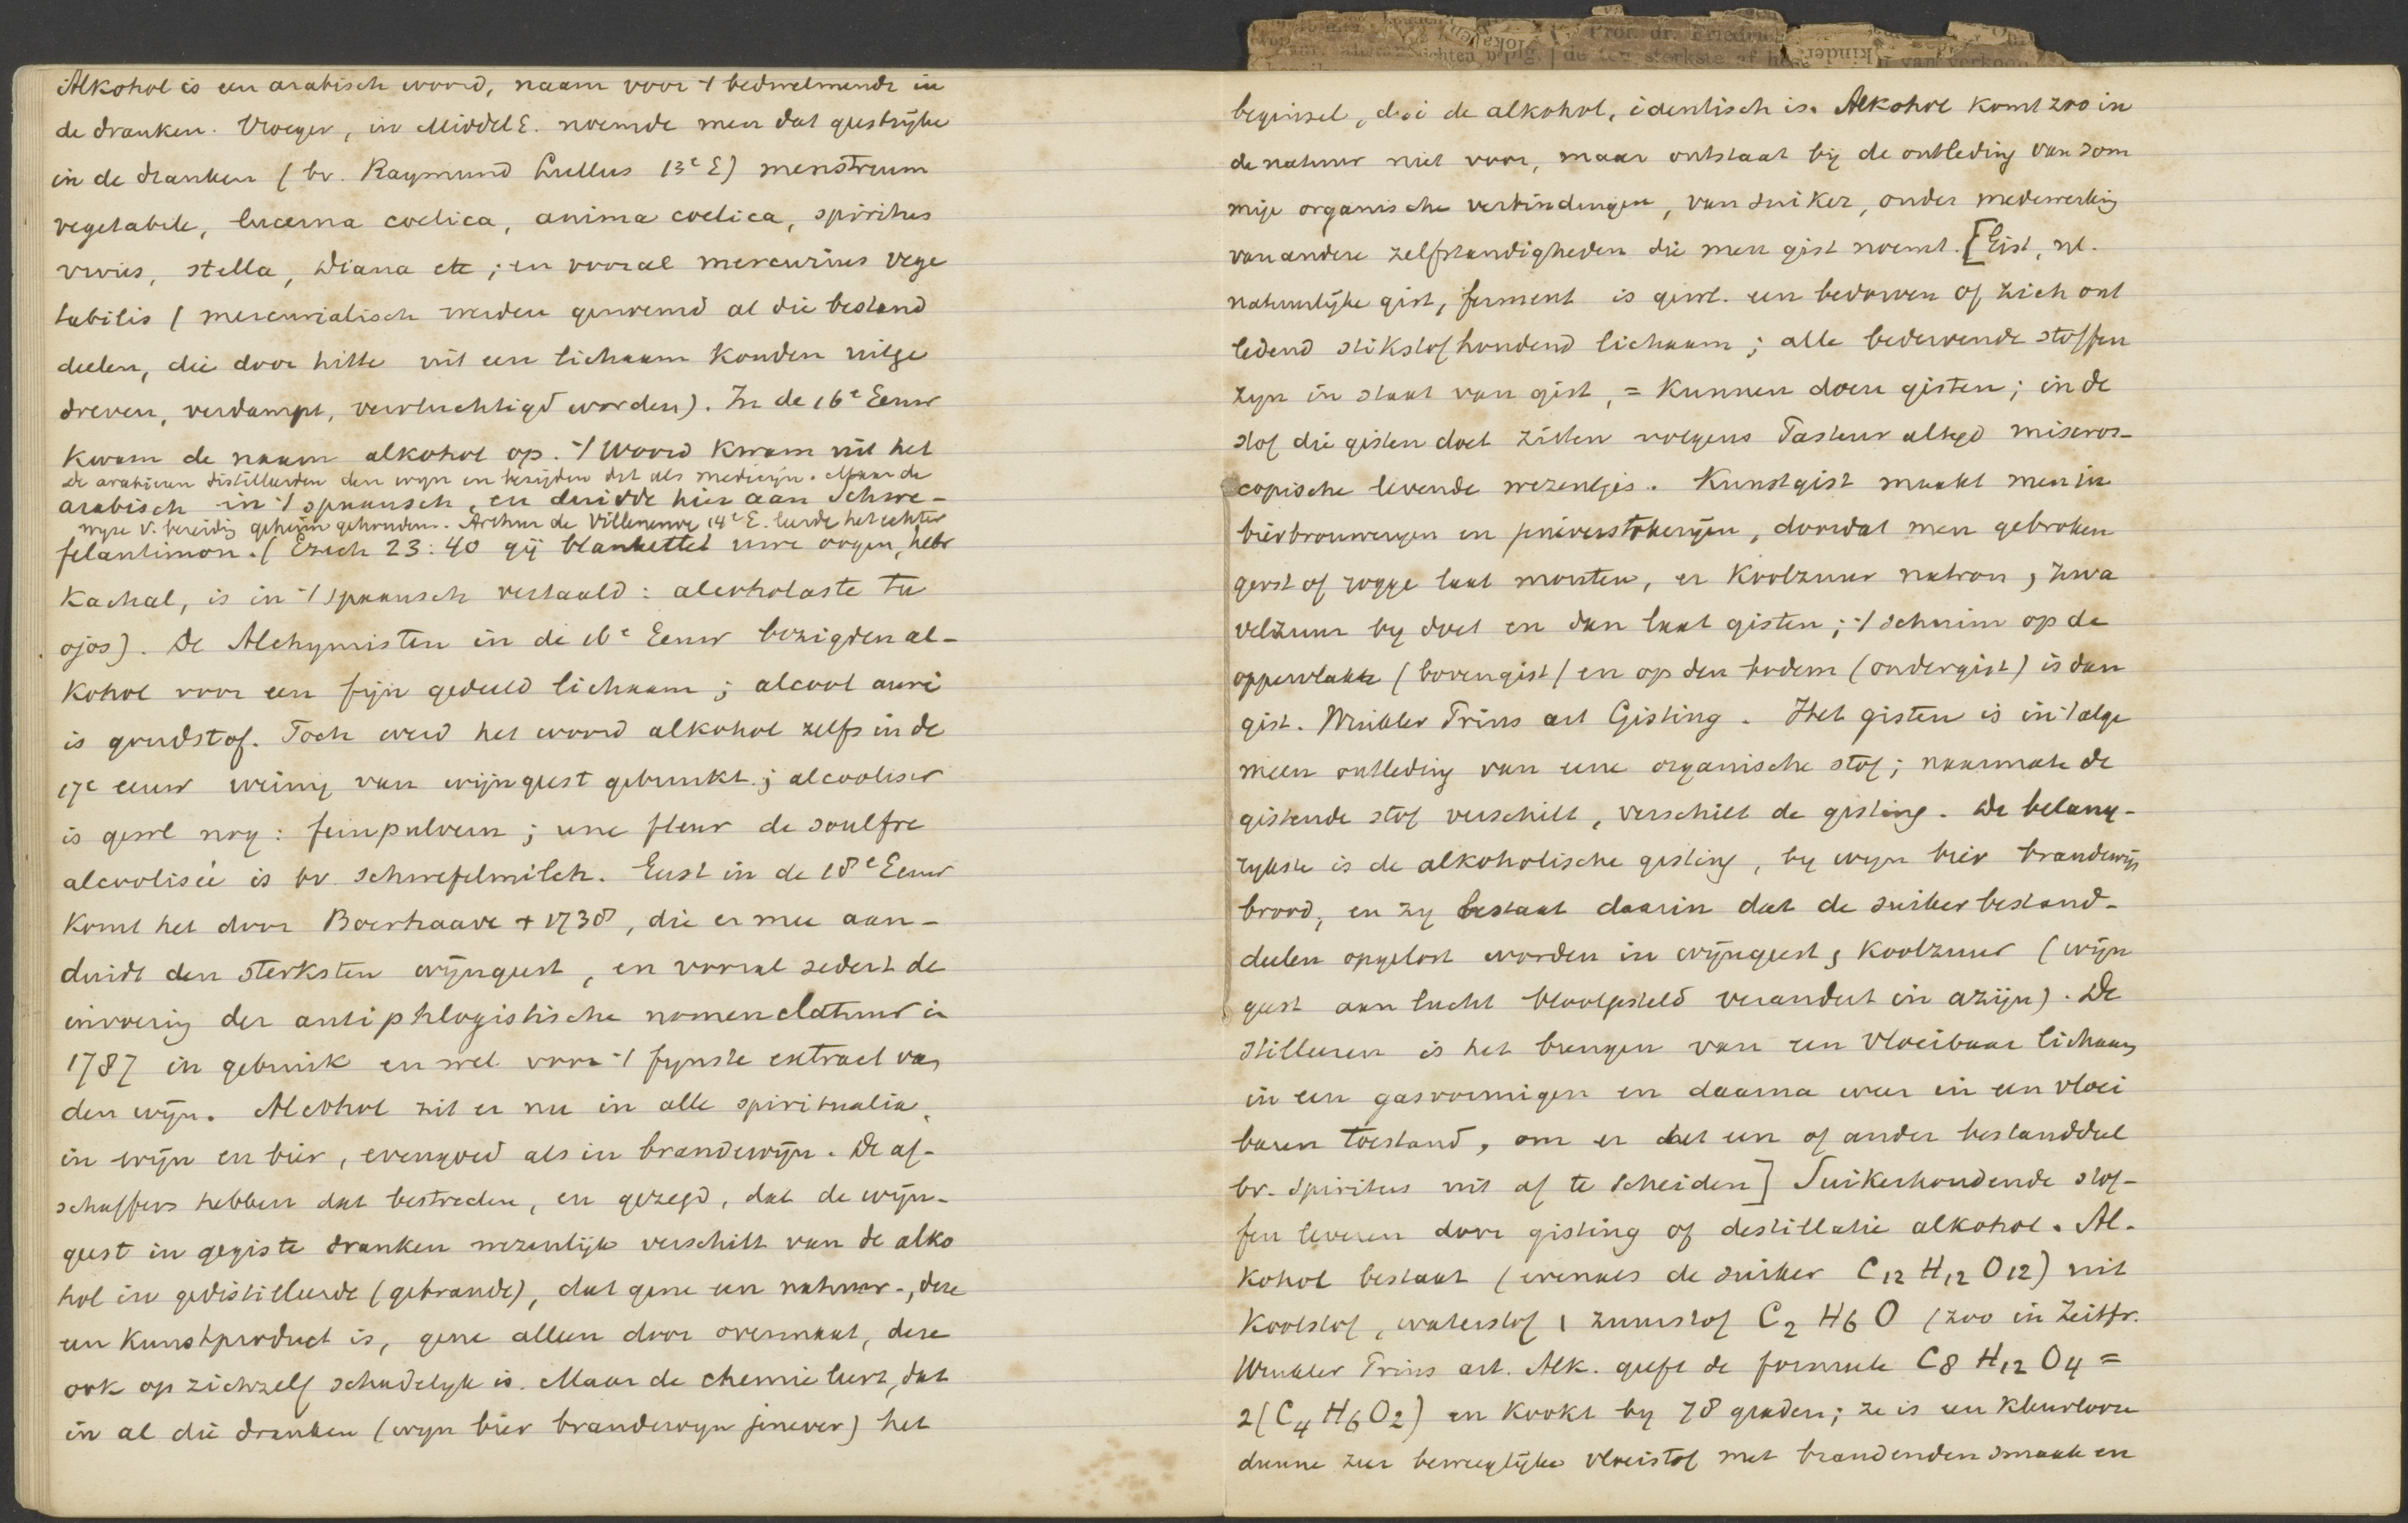 Alkohol is een arabisch woord, naam voor 't bedwelmende in
de dranken. Vroeger, in MiddelE. noemde men dat geestrijke
in de dranken (bv. Raymund Lullus 13e E) menstruum
vegetabile, lucerna coelica, anima coelica, spiritus
vivus, stella, Diana etc; en vooral mercurius vege
tabilis (mercurialisch werden genoemd al die bestand
deelen, die door hitte uit een lichaam konden uitge
dreven, verdampt, vervluchtigd worden). In de 16e Eeuw
kwam de naam alkohol op. 't Woord kwam uit het
De arabieren distilleerden den wyn en bezigden dit als medicijn. Maar de
arabisch in 't spaansch, en duidde hier aan Schwe-
wyze v. bereidg geheim gehouden. Arthur de Villeneuve 14e E. leerde het echter
felantimon. (Ezech 23:40 gij blankettet uwe oogen, hebr
Kachal, is in 't spaansch vertaald: alcoholaste tu
ojos). De Alchymisten in de 16e Eeuw bezigden al-
kohol voor een fijn gedeeld lichaam; alcool auri
is goudstof. Toch werd het woord alkohol zelfs in de
17e eeuw weinig van wijngeest gebruikt; alcooliser
is gewl nog: feinpulvern; une fleur de soulfre
alcoolisée is bv. schwefelmilch. Eerst in de 18e Eeuw
komt het door Boerhaave + 1738, die er mee aan-
duidt den sterksten wijngeest, en vooral sedert de
invoering der antiphlogistische nomenclatuur in
1787 in gebruik en wel voor 't fynste extract van
den wijn. Alcohol zit er nu in alle spiritualia,
in wijn en bier, evengoed als in brandewijn. De af-
schaffers hebben dat bestreden, en gezegd, dat de wijn-
geest in gegiste dranken wezenlijk verschilt van de alko
hol in gedistilleerde (gebrande), dat gene een natuur-, deze
een kunstproduct is, gene alleen door overmaat, deze
ook op zichzelf schadelyk is. Maar de chemie leert, dat
in al die dranken (wyn bier brandewyn jenever) het
beginsel, d.i. de alkohol, identisch is. Alkohol komt zoo in
de natuur niet voor, maar ontstaat bij de ontleding van som
mige organische verbindingen, van suiker, onder medewerking
van andere zelfstandigheden die men gist noemt. [Gist, nl.
natuurlijke gist, ferment is gewl. een bedorven of zich ont
ledend stikstofhoudend lichaam; alle bedervende stoffen
zyn in staat van gist, = kunnen doen gisten; in de
stof die gisten doet zitten volgens Pasteur altyd micros-
copische levende wezentjes. Kunstgist maakt men in
bierbrouweryen en jeneverstokeryen, doordat men gebroken
gerst of rogge laat moutens, er koolzuur natron, zwa
velzuur by doet en dan laat gisten; 't schuim op de
oppervlakte (bovengist) en op den bodem (ondergist) is dan
gist. Winkler Prins art Gisting. Het gisten is in 't alge
meen ontleding van eene organische stof; naarmate de
gistende stof verschilt, verschilt de gisting. De belang-
rykste is de alkoholische gisting, by wyn bier brandewijn
brood, en zy bestaat daarin dat de suikerbestand-
deelen opgelost worden in wijngeest, koolzuur (wijn
geest aan lucht blootgesteld verandert in azijn). De
stilleeren is het brengen van een vloeibaar lichaam
in een gasvormigen en daarna weer in een vloei
baren toestand, om er het een of ander bestanddeel
bv. spiritus uit af te scheiden] Suikerhoudende stof-
fen leveren door gisting of destillatie alkohol. Al-
kohol bestaat (evenals de suiker C12 H12 O12) uit
koolstof, waterstof, zuurstof C2 H6 O (zoo in Zeitfr.
Winkler Prins art. Alk. geeft de formule C8 H12 O4 =
2(C4 H6 O2) en kookt by 78 graden; ze is een kleurlooze
dunne zeer beweeglijke vloeistof met brandenden smaak en